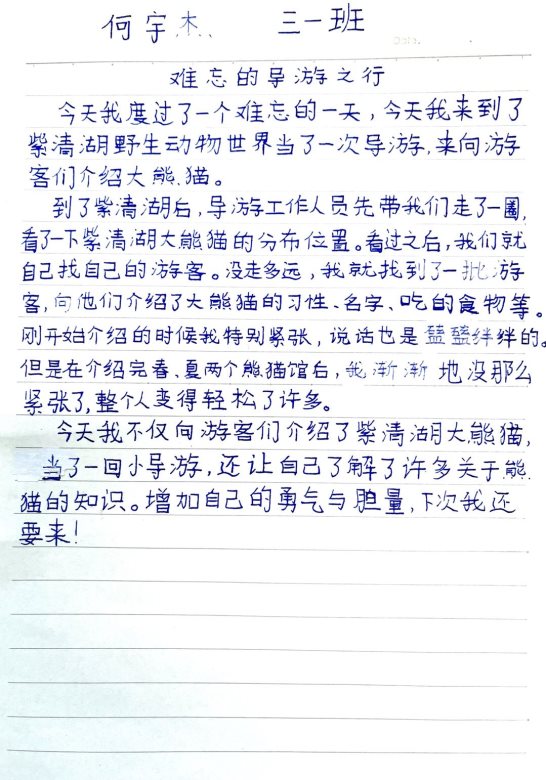 何宇杰 三一班
难忘的导游之行
今天我度过了一个难忘的一天，今天我来到了
紫清湖野生动物世界当了一次导游，来向游
客们介绍大熊猫。
到了紫清湖后，导游工作人员先带我们走了一圈，
看了一下紫清湖大熊猫的分布位置。看过之后，我们就
自己找自己的游客。没走多远，我就找到了一批游
客，向他们介绍了大熊猫的习性、名字、吃的食物等。
刚开始介绍的时候我特别紧张，说话也是磕磕绊绊的。
但是在介绍完春、夏两个熊猫馆后，我渐渐地没那么
紧张了，整个人变得轻松了许多。
今天我不仅向游客们介绍了紫清湖大熊猫，
当了一回小导游，还让自己了解了许多关于熊
猫的知识。增加自己的勇气与胆量，下次我还
要来！